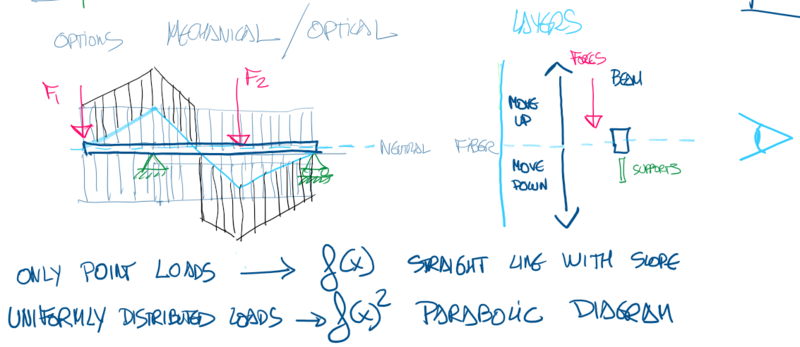 OPTIONS MECHANICAL / OPTICAL
F1
F2
NEUTRAL FIBER
LAYERS
FORCES
BEAM
MOVE
UP
MOVE
DOWN
SUPPORTS
ONLY POINT LOADS → f(x) STRAIGHT LINE WITH SLOPE
UNIFORMLY DISTRIBUTED LOADS → f(x)² PARABOLIC DIAGRAM